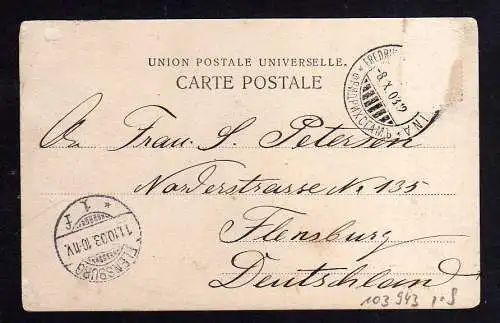 UNION POSTALE UNIVERSELLE.
CARTE POSTALE
8.X.03
An Frau. S. Petersen
Norderstrasse No 135
Flensburg
Deutschland
FLENSBURG
11.10.03.10-11V.
* 1 f
103 943